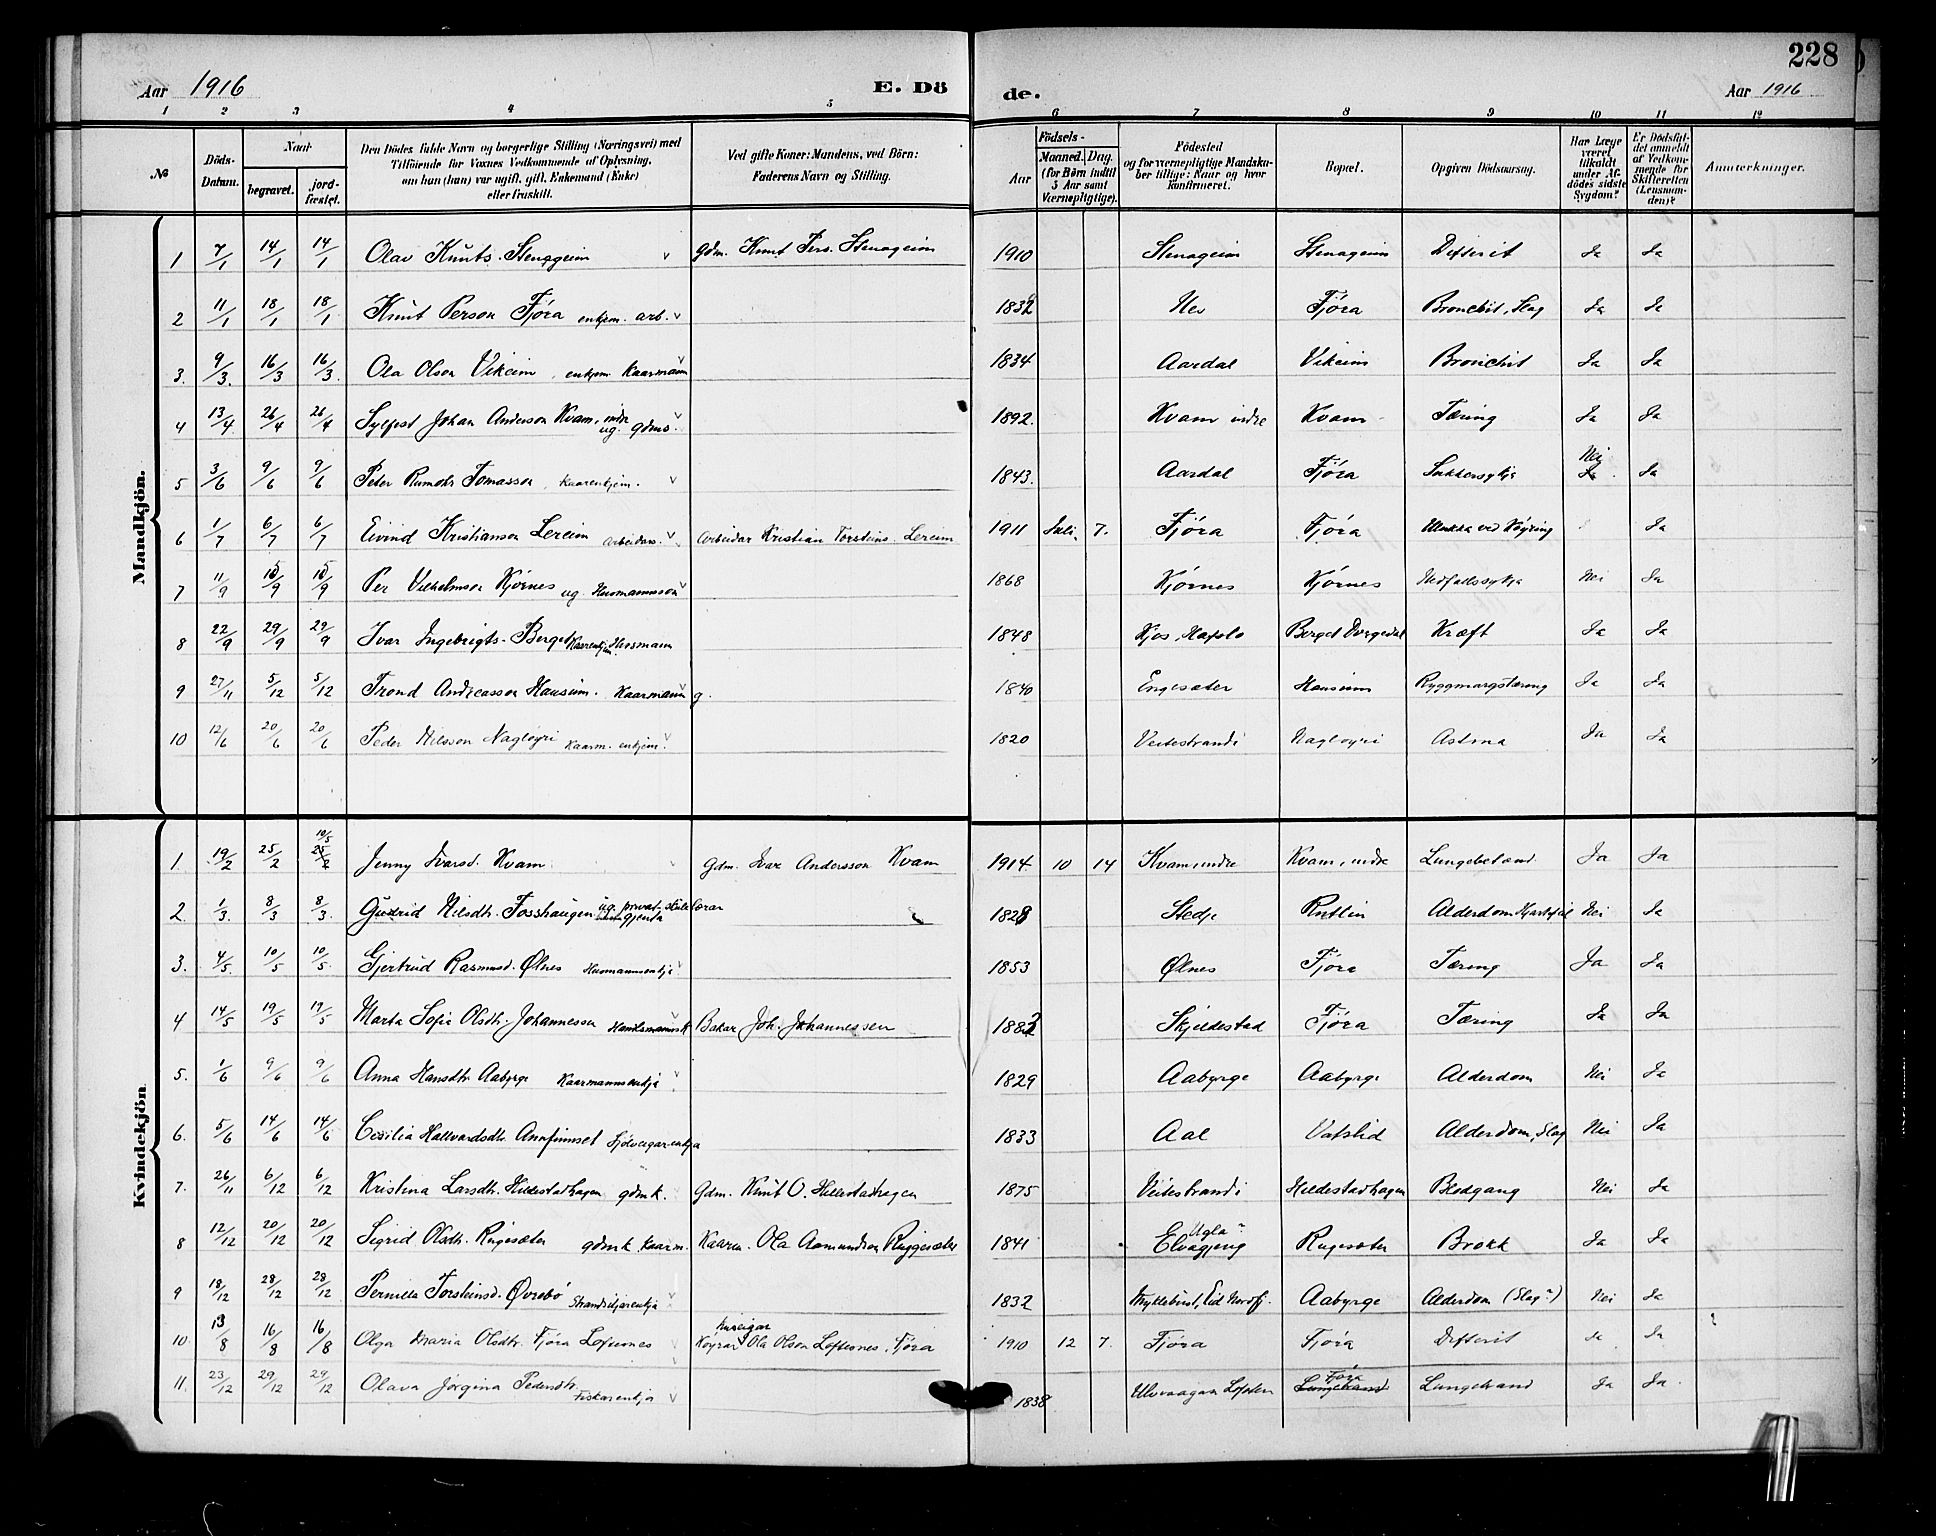 228
Aar 1916 E. Dö de. Aar 1916
1 2 3 4 5 6 7 8 9 10 11 12
№ Döds-Datum. Naar begravet. jordfæstet. Den Dödes fulde Navn og borgerlige Stilling (Næringsvei) med Tilföiende for Voxnes Vedkommende af Oplysning, om han (hun) var ugift, gift, Enkemand (Enke) eller fraskilt. Ved gifte Koner: Mandens, ved Börn: Faderens Navn og Stilling. Födsels- Aar Maaned. Dag. (for Börn indtil 5 Aar samt Værnepligtige). Födested og for værnepligtige Mandskaber tillige: Naar og hvor konfirmeret. Bopæl. Opgiven Dödsaarsag. Har Læge været tilkaldt under Afdödes sidste Sygdom? Er Dödsfaldet anmeldt af Vedkommende for Skifteretten (Lensmanden)? Anmærkninger.
Mandkjön.
1 7/1 14/1 14/1 Olav Knuts. Stenageim v gdm. Knut Pers. Stenageim 1910 Stenageim Stenageim Difterit Ja Ja
2 11/1 18/1 18/1 Knut Person Fjóra enkjem. arb. v 1832 Nes Fjóra Bronchit, Slag Ja Ja
3. 9/3. 16/3 16/3. Ola Olson Vikeim, enkjm. Kaarmann v 1834 Aardal Vikeim Bronchit Ja Ja
4 13/4. 26/4 26/4 Sylfest Johan Anderson Kvam, indre ug. gdms. v 1892. Kvam indre Kvam Tæring Ja Ja
5 3/6 9/6 9/6 Peter Tomasson, Kaarenkjem. v 1843. Aardal Fjóra Sukkersykja Nei Ja. Ja
6 1/7 6/7 6/7 Eivind Kristianson Lereim arbeidars. v arbeidar Kristian Torsteins. Lereim 1911 Juli. 7. Fjóra Fjóra Ulukka ved Köyring Ja
7 11/9 15/9 15/9 Per Vilhelmson Kjórnes ug. Husmannsson v 1868 Kjórnes Kjórnes Nedfallssykja Nei Ja
8 22/9 29/9 29/9 Ivar Ingebrigts. Berget Kaarenkjm. Husmann 1848 Kjos, Hafslo Berget Dyrgedal Kræft Ja Ja
9 27/11 5/12 5/12 Trond Andreasson Hauseim. Kaarmann g. 1840 Engesæter Hauseim Ryggmargstæring Ja Ja
10 12/6 20/6 20/6 Peder Nilsson Nagløyri Kaarm. enkjem. v 1820 Veitestrandi Nagløyri Astma Ja Ja
Kvindekjön
1. 19/2 25/2 10/5 25/2 Jenny Ivarsd. Kvam v Gdm. Ivar Andersson Kvam 1914. 10 14 Kvam indre Kvam, indre Lungebetænd. Ja Ja
2. 1/3. 8/3 8/3. Gudrid Nilsdtr. Fosshaugen ug. privat-skulelærar gjenta 1828 Stedje Rutlin Alderdom Hjartefeil Nei Ja
3. 4/5. 10/5 10/5. Gjertrud Rasmusd. Ølnes Husmannsenkja v 1853 Ølnes Fjóra Tæring Ja Ja
4 14/5 19/5 19/5 Marta Sofia Olsdtr. Johannessen Handsmannsk. v Bakar Joh. Johannessen 1882 Skjeldestad Fjóra Tæring Ja Ja
5. 1/6 9/6 9/6 Anna Hansdtr. Aabyrge Kaarmannsenkja v 1829 Aabyrge Aabyrge Alderdom Nei Ja
6. 5/6 14/6 14/6 Cecilia Hallvardsdtr. Annfinnset Sjólveigarenkja 1833 Aal Vatslid Alderdom, Slag Nei Ja
7. 26/11 6/12 6/12 Kristina Larsdtr. Hildestadhagen gdmk. Gdm. Knut O. Hillestadhagen 1875 Veitestrandi Hildestadhagen Blodgang Nei Ja
8 12/12 20/12 20/12 Sigrid Olsdtr. Rugesæter gdmk. kaarm. Kaarm. Ola Aamundson Ryggesæter 1841 Ugla? Elvagjeng Rugesæter Brokk Ja Ja
9 18/12 28/12 28/12 Pernilla Torsteinsd. Øvrebø Strandsitjarenkja v 1832 Myklebust, Eid Nordfj. Aabyrge Alderdom (Slag?) Nei Ja
10. 13/8 16/8 16/8 Olga Maria Olsdtr. Fjóra Loftesnes v huseigar Köyrar Ola Olson Loftesnes, Fjóra 1910 12 7. Fjóra Fjóra Difterit Ja Ja
11. 23/12 29/12 29/12 Olava Jørgina Pedersdtr. Fiskarenkja v 1838 Ulvvaagan Lofoten Fjóra Lungebrand Lungebrand Ja Ja.